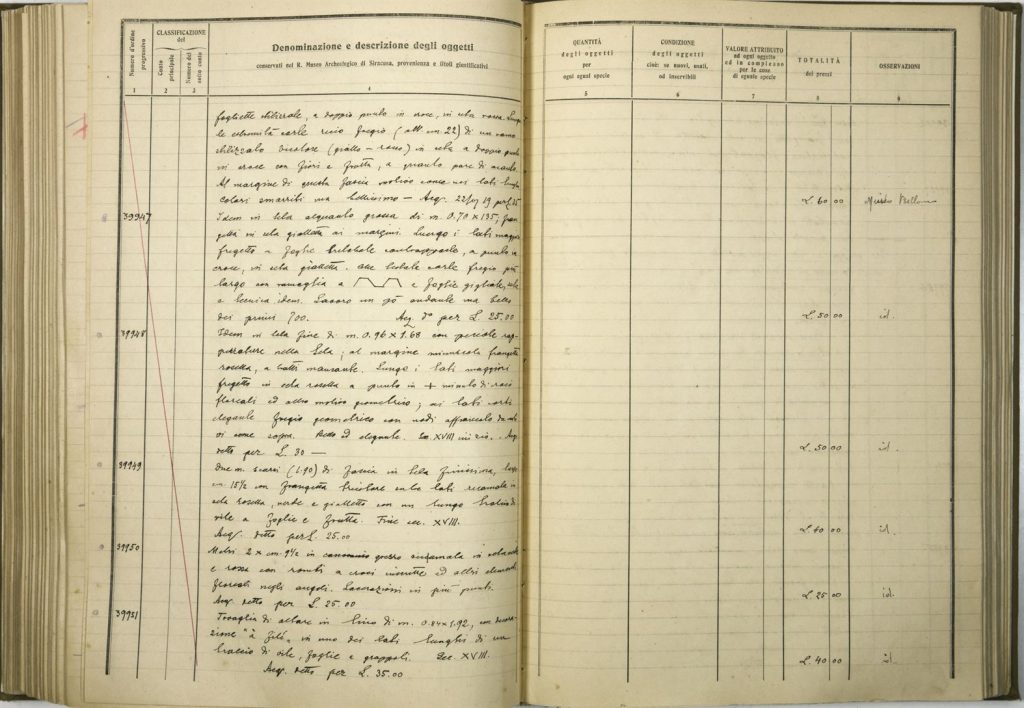 Numero d'ordine progressivo
CLASSIFICAZIONE del
Conto principale
Numero del sotto conto
Denominazione e descrizione degli oggetti
conservati nel R. Museo Archeologico di Siracusa, provenienza e titoli giustificativi
1 2 3 4
fogliette stilizzate, a doppio punto in croce, in seta rossa. Lungo
le estremità corte ricco fregio (alt. cm 22) di un ramo
stilizzato bicolore (giallo - rosso) in seta a doppio punto
in croce con fiori e frutta, a quanto pare di
Al margine di questa fascia motivo come nei lati lunghi
colori smarriti ma bellissimo - Acq.
39947
Idem in tela alquanto grossa di m. 0.70 x 135,
in seta gialletta ai margini. Lungo i lati maggiori
fregetto a foglie trilobate contrapposte, a punto in
croce, in seta gialletta. Alle testate corte fregio più
largo con ramaglia a e foglie gigliate,
e tecnica idem. Lavoro un pò andante ma bello
dei primi 700. Acq. dº per L. 25.00
39948
Idem in tela fine di m. 0.96 x 1.68 con piccole rap-
pezzature nella tela; al margine minuscola frangetta
rosetta, a tratti mancante. Lungo i lati maggiori
fregetto in seta rosetta a punto in + minuto di
floreali ed altro motivo geometrico; ai lati corti
elegante fregio geometrico con nodi affiancato da
vi come sopra. ed elegante. Sec. XVIII inizio. Acq.
detto per L. 30 —
39949
Due m. scarsi (1.90) di fascia in tela finissima, larga
cm. 15½ con frangetta tricolore ai lati ricamata in
seta rosetta, verde e gialletto con un lungo tralcio di
vite a foglie e frutta. Fine sec. XVIII.
Acq. detto per L. 25.00
39950
Metri 2 x cm. 9½ in grosso ricamata in
e rosso con rombi a croci inscritte ed altri elementi
floreali negli angoli. Lacerazioni in più punti.
Acq. detto per L. 25.00
39951
Tovaglia di altare in lino di m. 0.84 x 1.92, con decora-
zione "a filé" in uno dei lati lunghi di un
tralcio di vite, foglie e grappoli. Sec. XVIII.
Acq. detto per L. 35.00
QUANTITÀ degli oggetti per ogni ogni specie
CONDIZIONE degli oggetti cioè: se nuovi, usati, od inservibili
VALORE ATTRIBUITO ad ogni oggetto ed in complesso per le cose di eguale specie
TOTALITÀ dei prezzi
OSSERVAZIONI
5 6 7 8 9
L. 60 00 Museo Bellomo
L. 50 00 id.
L. 50 00 id.
L. 40 00 id.
L. 25 00 id.
L. 40 00 id.